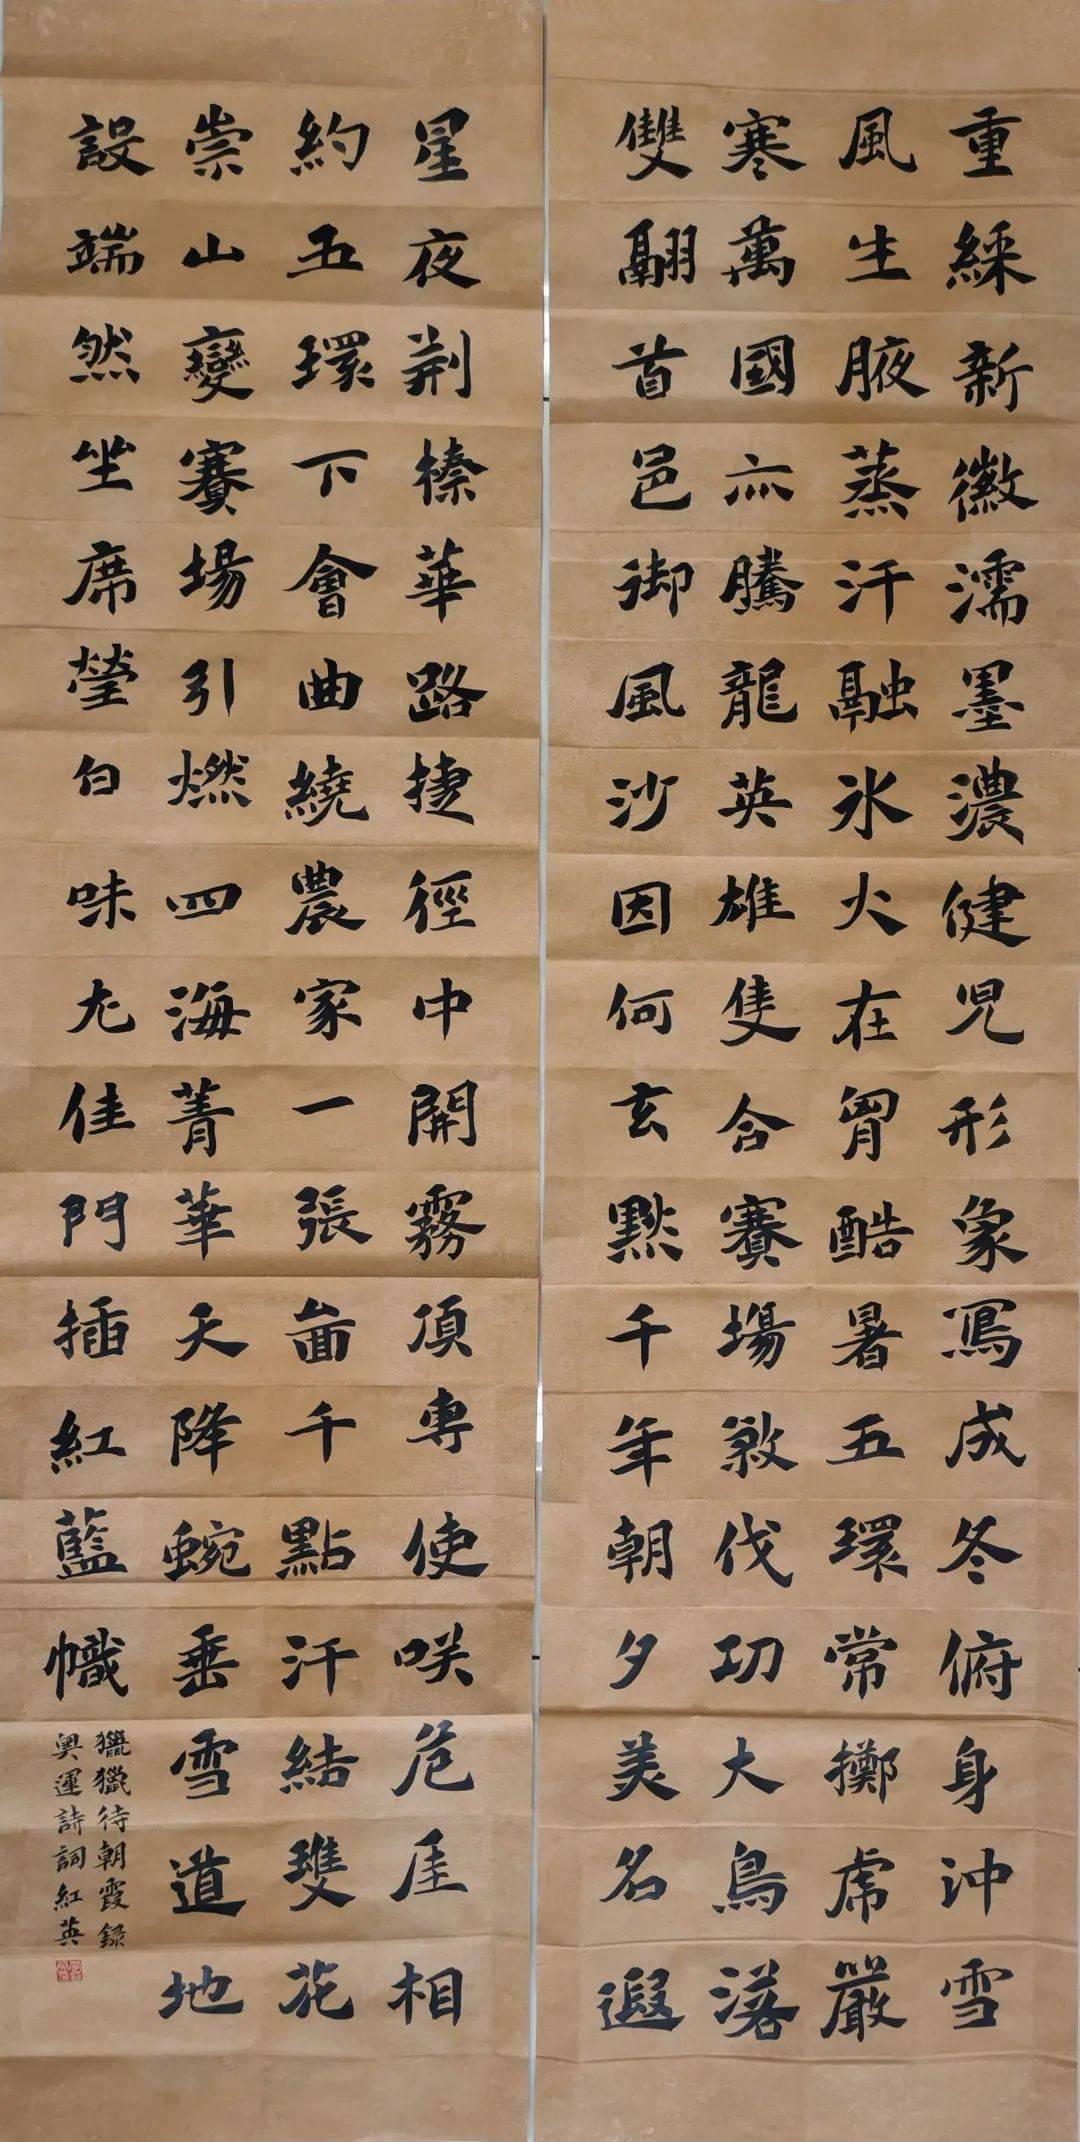 重綵新徽濡墨濃健兒形象寫成冬俯身沖雪
風生腋蒸汗融冰火在胷酷暑五環常擲虎嚴
寒萬國亦騰龍英雄隻合賽場伐功大鳥落
雙翮首邑御風沙因何玄黙千年朝夕美名遐
星夜荆榛華路捷徑中開霧頂專使咲危厓相
約五環下會曲繞農家一張面千點汗結雙花
崇山變賽場引燃四海菁華天降蜿垂雪道地
設端然坐席瑩白味尤佳門插紅藍幟
獵獵待朝霞錄
奧運詩詞紅英